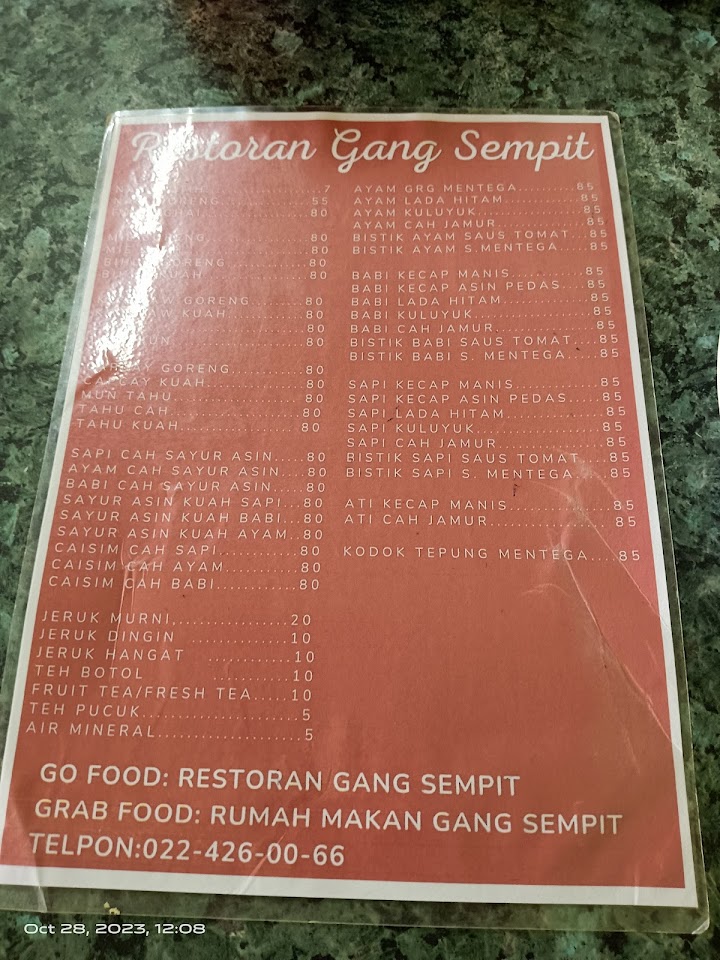 Restoran Gang Sempit
.....7
GORENG.....55
.....80
.....80
.....80
BIHUN GORENG.....80
KUAH.....80
GORENG.....80
KUAH.....80
.....80
.....80
GORENG.....80
CAPCAY KUAH.....80
MUN TAHU.....80
TAHU CAH.....80
TAHU KUAH.....80
SAPI CAH SAYUR ASIN.....80
AYAM CAH SAYUR ASIN....80
BABI CAH SAYUR ASIN.....80
SAYUR ASIN KUAH SAPI...80
SAYUR ASIN KUAH BABI...80
SAYUR ASIN KUAH AYAM..80
CAISIM CAH SAPI...........80
CAISIM CAH AYAM..........80
CAISIM CAH BABI............80
JERUK MURNI...............20
JERUK DINGIN ..............10
JERUK HANGAT ...........10
TEH BOTOL ............10
FRUIT TEA/FRESH TEA.....10
TEH PUCUK......................5
AIR MINERAL.....................5
AYAM GRG MENTEGA.........85
AYAM LADA HITAM............85
AYAM KULUYUK................85
AYAM CAH JAMUR.............85
BISTIK AYAM SAUS TOMAT...85
BISTIK AYAM S.MENTEGA....85
BABI KECAP MANIS...........85
BABI KECAP ASIN PEDAS....85
BABI LADA HITAM.............85
BABI KULUYUK.................85
BABI CAH JAMUR..............85
BISTIK BABI SAUS TOMAT...85
BISTIK BABI S. MENTEGA....85
SAPI KECAP MANIS............85
SAPI KECAP ASIN PEDAS.....85
SAPI LADA HITAM..............85
SAPI KULUYUK..................85
SAPI CAH JAMUR...............85
BISTIK SAPI SAUS TOMAT....85
BISTIK SAPI S. MENTEGA.....85
ATI KECAP MANIS..............85
ATI CAH JAMUR.................85
KODOK TEPUNG MENTEGA....85
GO FOOD: RESTORAN GANG SEMPIT
GRAB FOOD: RUMAH MAKAN GANG SEMPIT
TELPON:022-426-00-66
Oct 28, 2023, 12:08